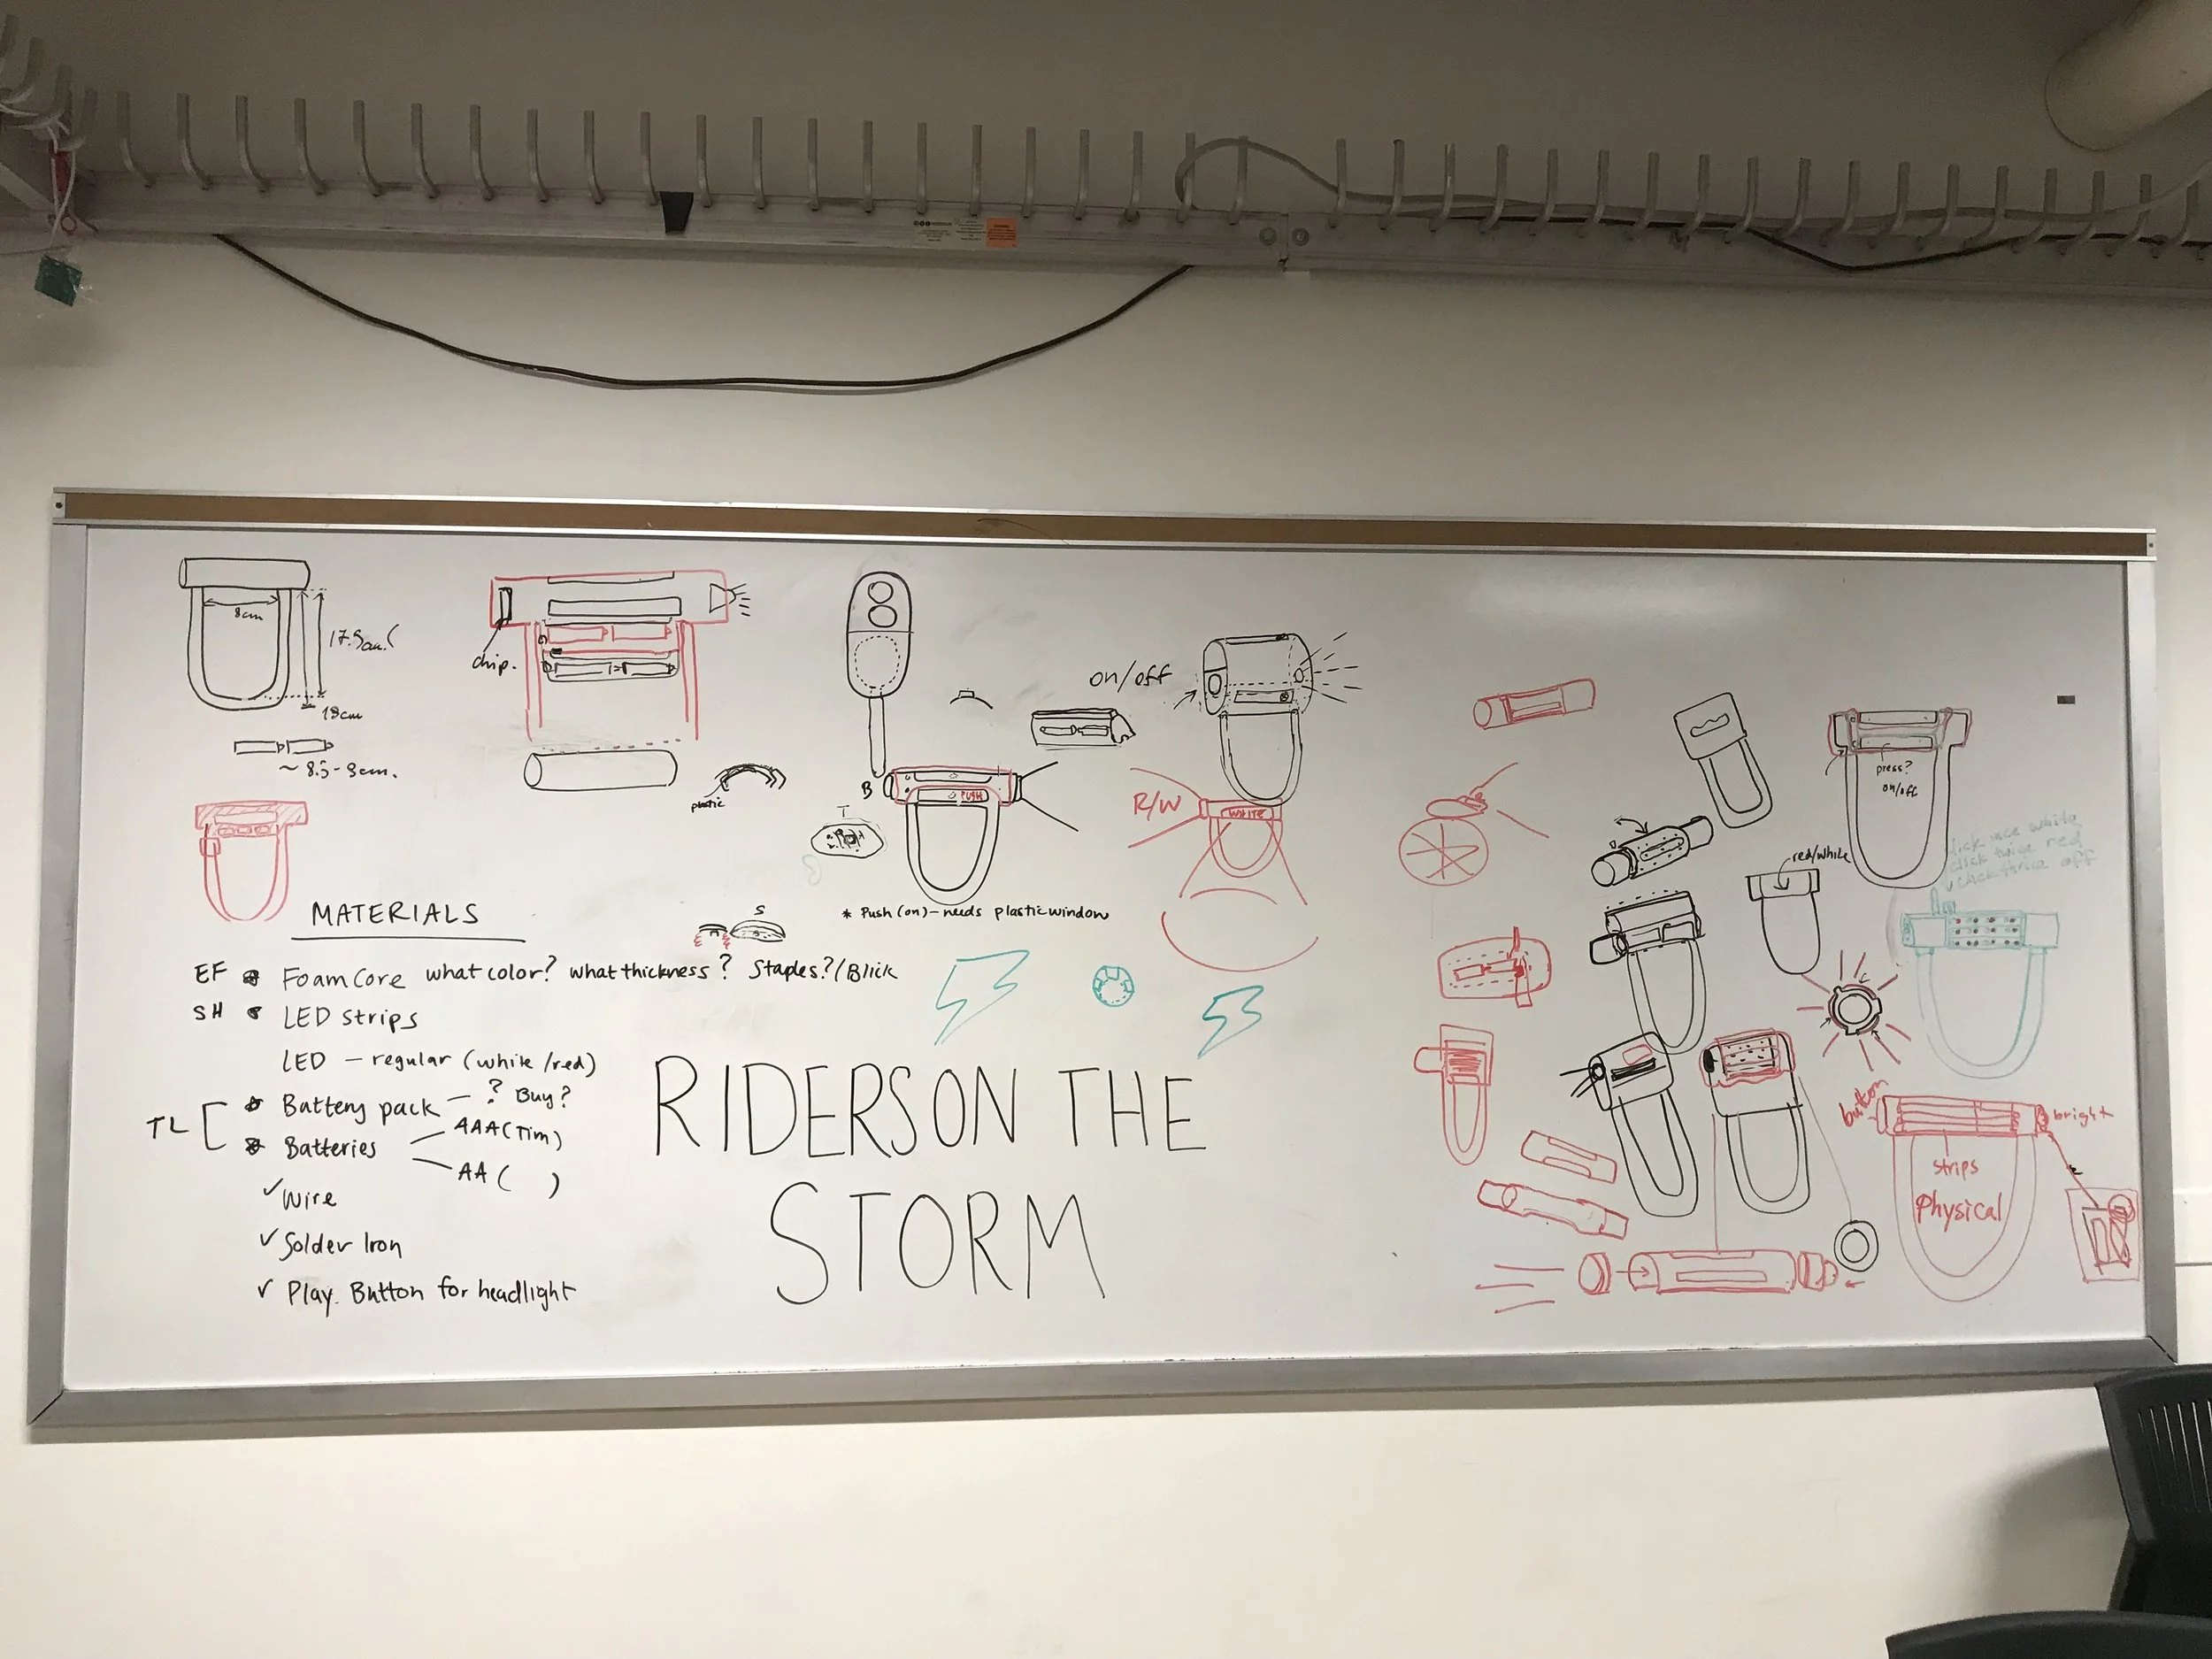 8cm
18cm
chip.
plastic
MATERIALS
EF FoamCore what color? what thickness? Staples?/Blick
SH LED strips
LED - regular (white/red)
Battery pack - ? Buy?
TL
Batteries
AAA (Tim)
AA ( )
✓ Wire
✓ Solder Iron
✓ Play. Button for headlight
B
T
S
PUSH
* Push (on) - needs plastic window
on/off
R/W
WHITE
RIDERS ON THE
STORM
press?
on/off
red/white
click twice red
click thrice off
button
bright
strips
Physical